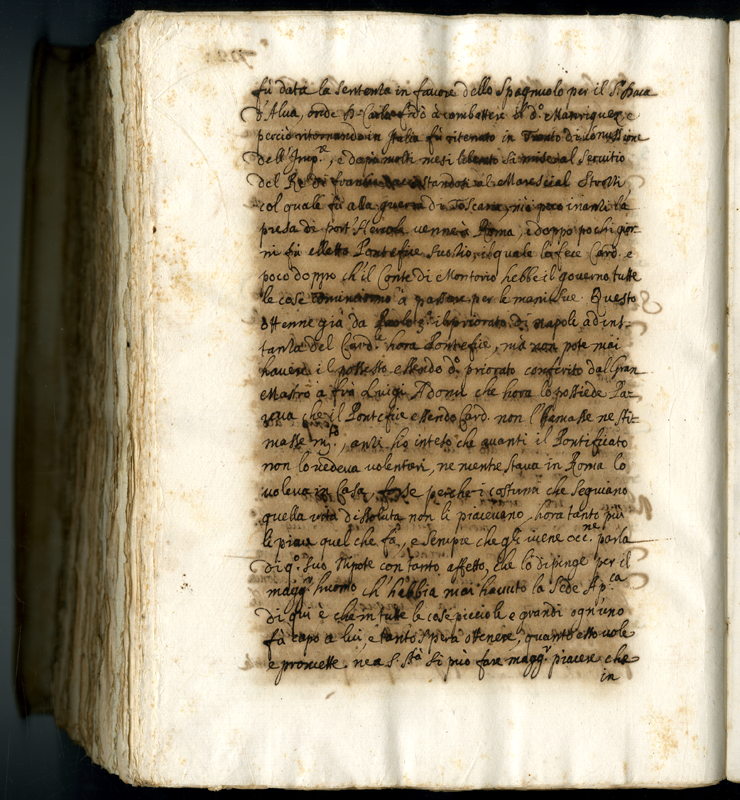 fù data la sentenza in favore dello Spagnuolo per il S.r Duca
d'Alva, onde D. Carlo andò à combattere il d.o Manriquez, e
perciò ritornando in Italia fù ritenuto in Trento di commissione
dell'Imp.re, e dopò molti mesi liberato si mise al servitio
del Rè di Francia accostandosi al Marescial Strozzi
col quale fù alla guerra di Toscana, mà poco inanti la
presa di Port'Hercole venne a Roma, e doppo pochi gior
ni fù eletto Pontefice suo Zio, il quale lo fece Card. e
poco doppo ch'il Conte di Montorio hebbe il governo tutte
le cose cominciorno à passare per le mani sue. Questo
ottenne già da Paolo 3.o il priorato di Napoli ad ins-
tanza del Card.l hora Pontefice, mà non pote mai
havere il possesso essendo d.o priorato conferito dal Gran
Mastro à frà Luigi Adorni che hora lo possiede Pa-
reva che il Pontefice essendo Card. non l'amasse ne sti-
masse m.to, anzi hò inteso che avanti il Pontificato
non lo vedeva volentieri, ne mentre stava in Roma lo
voleva in Casa, forse perche i costumi che seguivano
quella vita dissoluta non li piacevano, hora tanto più
li piace quel che fà, e sempre che gli viene occ.ne parla
di q.o suo Nipote con tanto affetto, che lo dipinge per il
magg.r huomo ch'habbia mai havuto la Sede Ap.ca
di qui è che in tutte le cose picciole e grandi ogn'uno
fà capo a lui, e tanto spera ottenere, quanto esso vole
e promette. ne a S. S.tà si può fare magg.r piacere che
in